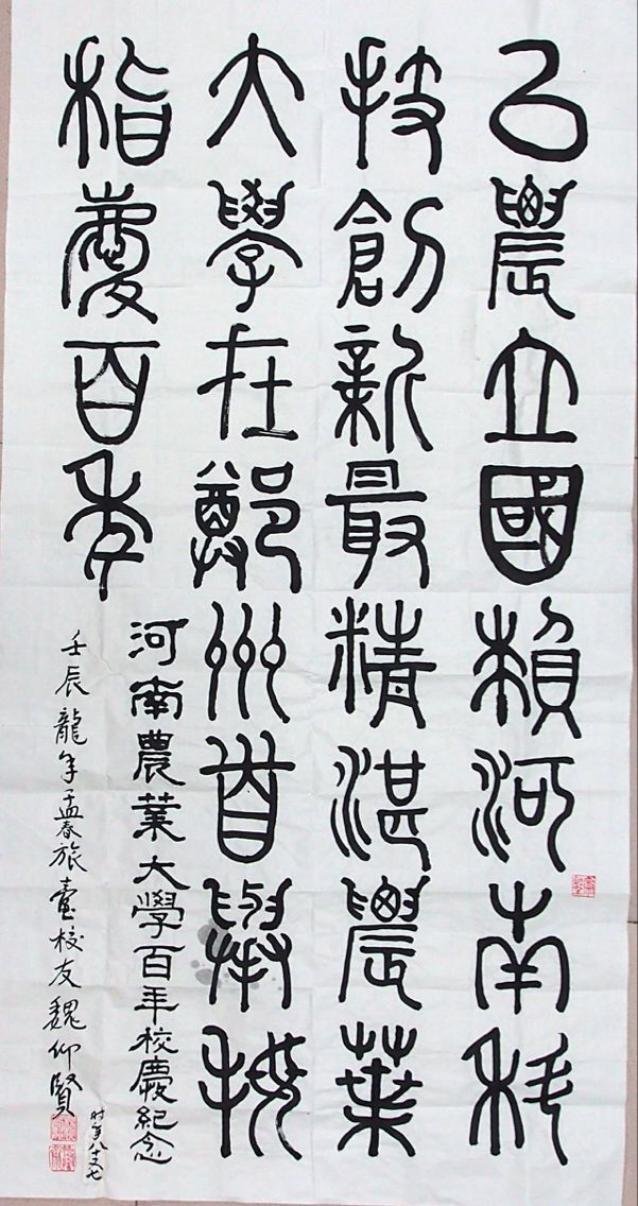 以農立國賴河南科
技創新最精湛農業
大學在鄭州首舉拇
指慶百年
河南農業大學百年校慶紀念
壬辰龍年孟春旅臺校友魏仰賢
時年八十又七